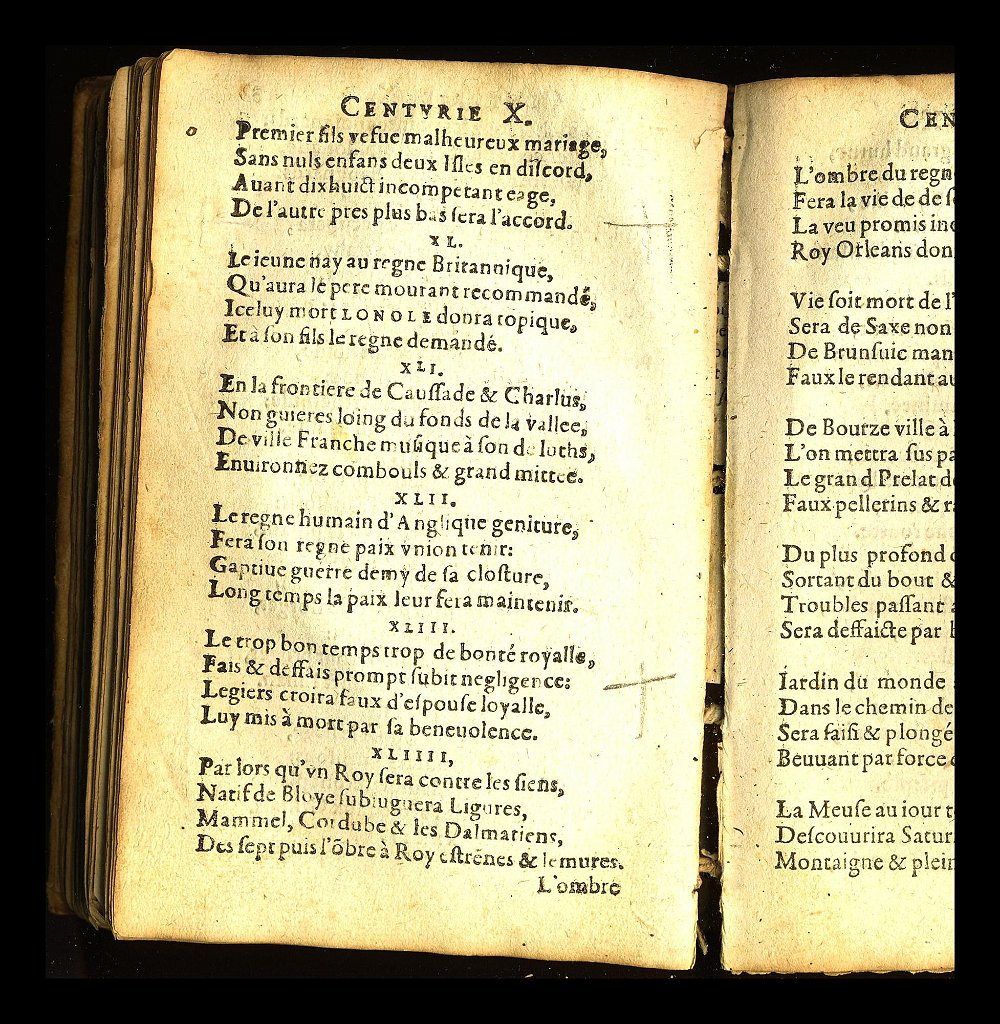 CENTVRIE X.
Premier fils vefue malheureux mariage,
Sans nuls enfans deux Iſles en diſcord,
Auant dixhuict incompetant eage,
De l'autre pres plus bas ſera l'accord.
XL.
Le ieune nay au regne Britannique,
Qu'aura le pere mourant recommandé,
Iceluy mort LONOLE donra topique,
Et à ſon fils le regne demandé.
XLI.
En la frontiere de Cauſſade & Charlus,
Non guieres loing du fonds de la vallee,
De ville Franche muſique à ſon de luths,
Enuironnez combouls & grand mittee.
XLII.
Le regne humain d'Anglique geniture,
Fera ſon regne paix vnion tenir:
Captiue guerre demy de ſa cloſture,
Long temps la paix leur fera maintenir.
XLIII.
Le trop bon temps trop de bonté royalle,
Fais & deffais prompt ſubit negligence:
Legiers croira faux d'eſpouſe loyalle,
Luy mis à mort par ſa beneuolence.
XLIIII,
Par lors qu'vn Roy ſera contre les ſiens,
Natif de Bloye ſubiuguera Ligures,
Mammel, Cordube & les Dalmatiens,
Des ſept puis l'õbre à Roy eſtrénes & lemures.
L'ombre
CEN
L'ombre du regn
Fera la vie de de ſ
La veu promis in
Roy Orleans don
Vie ſoit mort de l'
Sera de Saxe non
De Brunſuic man
Faux le rendant au
De Bourze ville à
L'on mettra ſus pa
Le grand Prelat d
Faux pellerins & r
Du plus profond
Sortant du bout &
Troubles paſſant
Sera deffaicte par
Iardin du monde
Dans le chemin de
Sera ſaiſi & plongé
Beuuant par force
La Meuſe au iour t
Deſcouurira Satur
Montaigne & plein